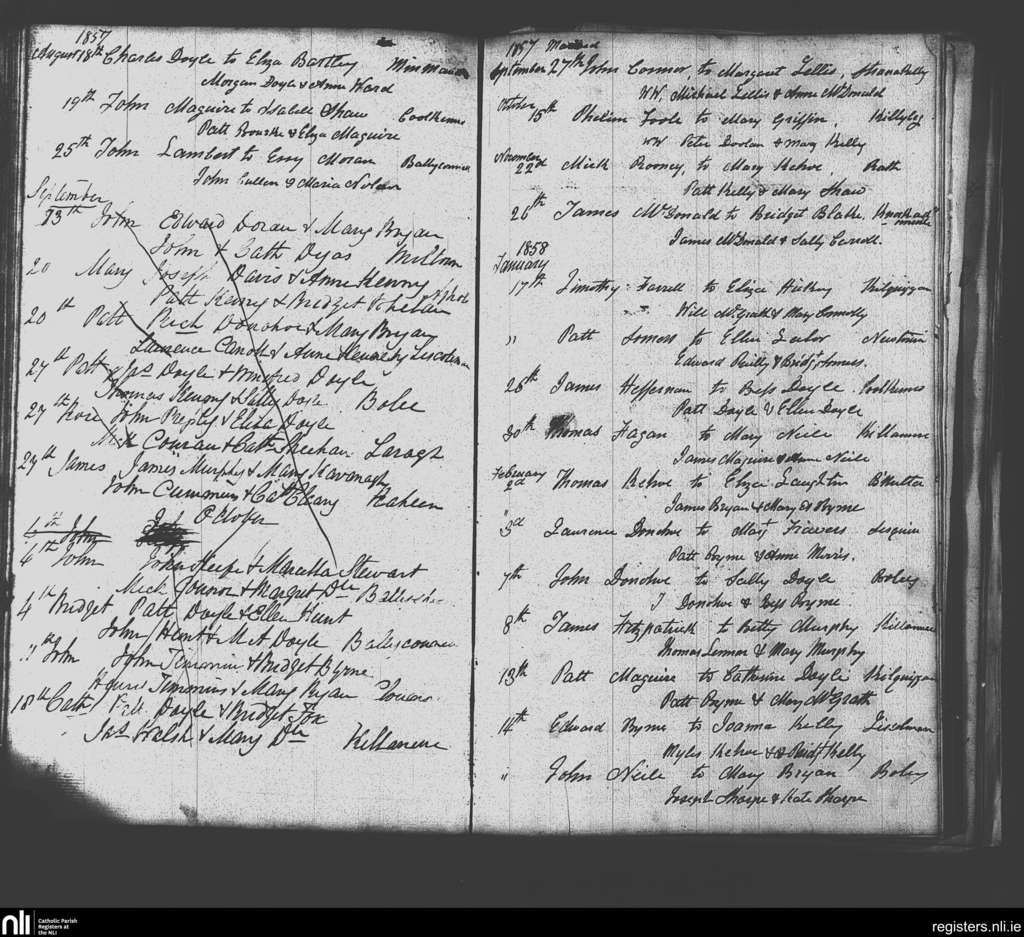 1857
August 18th Charles Doyle to Eliza Bartley
Morgan Doyle & Anne Ward
19th John Maguire to Isabell Shaw Coolkenna
Patt Rourke & Eliza Maguire
25th John Lambert to Essy Moran Ballyconnor
John Cullen & Maria Nolan
September
13th John Edward Doran & Mary Bryan
John & Cath Dyas Milltown
20 Mary Joseph Davis & Anne Kenny
Patt Kenny & Bridget Whelan
20th Patt Rich Donohoe & Mary Bryan
Laurence Canoll & Anne Kennedy
27th Patt Jas Doyle & Winefred Doyle
Thomas Kenny & Sally Doyle Bolee
27th Rose John & Eliza Doyle
Mick & Cath Sheehan Laragh
29th James James Murphy & Mary Kavanagh
John Cummins & Cath Cleary Raheen
October
4th John
4th John John Keefe & Marcella Stewart
Mick Connor & Margret Do
4th Bridget Patt Doyle & Ellen Hunt
John Hunt & M A Doyle
" John John Timmin & Bridget Byrne
Henry Timmins & Mary Ryan
18th Cath Patt Doyle & Bridget Fox
Jas Walsh & Mary Do Killanure
1857 Married
September 27th John Connor to Margaret Lellis,
WW, Michael Lellis & Anne McDonald
October
15th Phelim Toole to Mary Griffin, Killybeg
WW Peter Doolan & Mary Kelly
November
22d Mick Rooney, to Mary Kehoe, Rath
Patt Kelly & Mary Shaw
26th James McDonald to Bridget Blake,
James McDonald & Sally Carroll.
1858
January
17th Timothy Farrell to Eliza Hickey Kilquiggan
Will McGrath & Mary Connolly
" Patt Somers to Ellen Lalor
Edward Reilly & Bridgt
26th James Heffernan to Bess Doyle Coolkenna
Patt Doyle & Ellen Doyle
30th Thomas Fagan to Mary Neile Killanure
James Maguire & Anne Neile
February
2d Thomas Kehoe to Eliza Laughlin
James Bryan & Mary Byrne
"3d Laurence Donohoe to Mary Travers
Patt Byrne & Anne Morris.
7th John Donohoe to Sally Doyle Boley
J Donohoe & Bess Byrne
8th James Fitzpatrick to Betty Murphy Killanure
Thomas Lennon & Mary Murphy
13th Patt Maguire to Catherine Doyle Kilquiggan
Patt Byrne & Mary McGrath
14th Edward Byrne to Joanna Kelly Liscolman
Myles Kehoe & Bridgt Kelly
" John Neile to Mary Bryan Boley
Joseph Sharpe & Kate Sharpe
nli Catholic Parish
Registers at
the NLI
registers.nli.ie